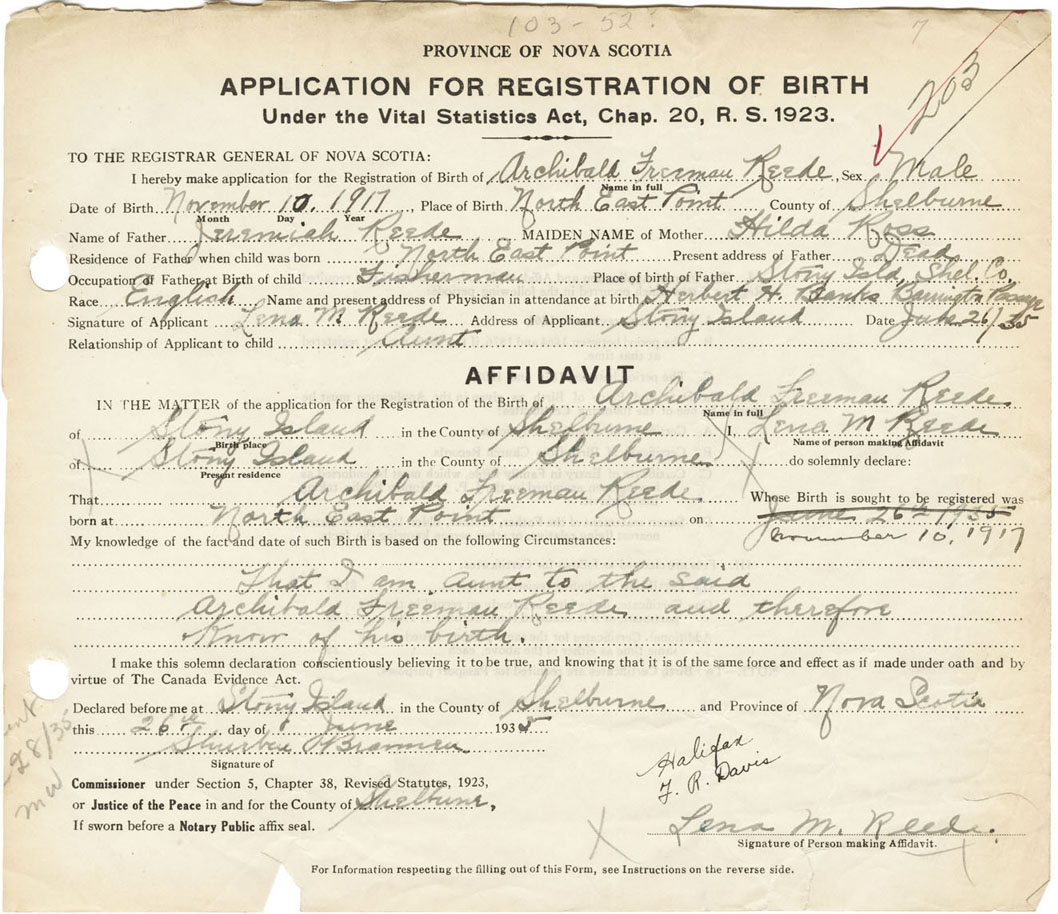 103-52
7
203
PROVINCE OF NOVA SCOTIA
APPLICATION FOR REGISTRATION OF BIRTH
Under the Vital Statistics Act, Chap. 20, R. S. 1923.
TO THE REGISTRAR GENERAL OF NOVA SCOTIA:
I hereby make application for the Registration of Birth of Archibald Freeman Reede, Sex Male
Name in full
Date of Birth November 10, 1917, Place of Birth North East Point County of Shelburne
Month Day Year
Name of Father Jeremiah Reede MAIDEN NAME of Mother Hilda Ross
Residence of Father when child was born North East Point Present address of Father Dead
Occupation of Father at Birth of child Fisherman Place of birth of Father Stony Isld, Shel. Co.
Race English Name and present address of Physician in attendance at birth Herbert H. Banks Barrington Passage
Signature of Applicant Lena M. Reede Address of Applicant Stony Island Date June 26/35
Relationship of Applicant to child Aunt
AFFIDAVIT
IN THE MATTER of the application for the Registration of the Birth of Archibald Freeman Reede
Name in full
of Stony Island in the County of Shelburne I, Lena M Reede
Birth place Name of person making Affidavit
of Stony Island in the County of Shelburne do solemnly declare:
Present residence
That Archibald Freeman Reede Whose Birth is sought to be registered was
born at North East Point on June 26th 1935
November 10, 1917
My knowledge of the fact and date of such Birth is based on the following Circumstances:
That I am Aunt to the said
Archibald Freeman Reede and therefore
Know of his birth.
I make this solemn declaration conscientiously believing it to be true, and knowing that it is of the same force and effect as if made under oath and by
virtue of The Canada Evidence Act.
Declared before me at Stony Island in the County of Shelburne and Province of Nova Scotia
this 26th day of June 1935
Signature of
Commissioner under Section 5, Chapter 38, Revised Statutes, 1923,
or Justice of the Peace in and for the County of Shelburne,
If sworn before a Notary Public affix seal.
28/35
MW
Halifax
F. R. Davis
Lena M. Reede.
Signature of Person making Affidavit.
For Information respecting the filling out of this Form, see Instructions on the reverse side.